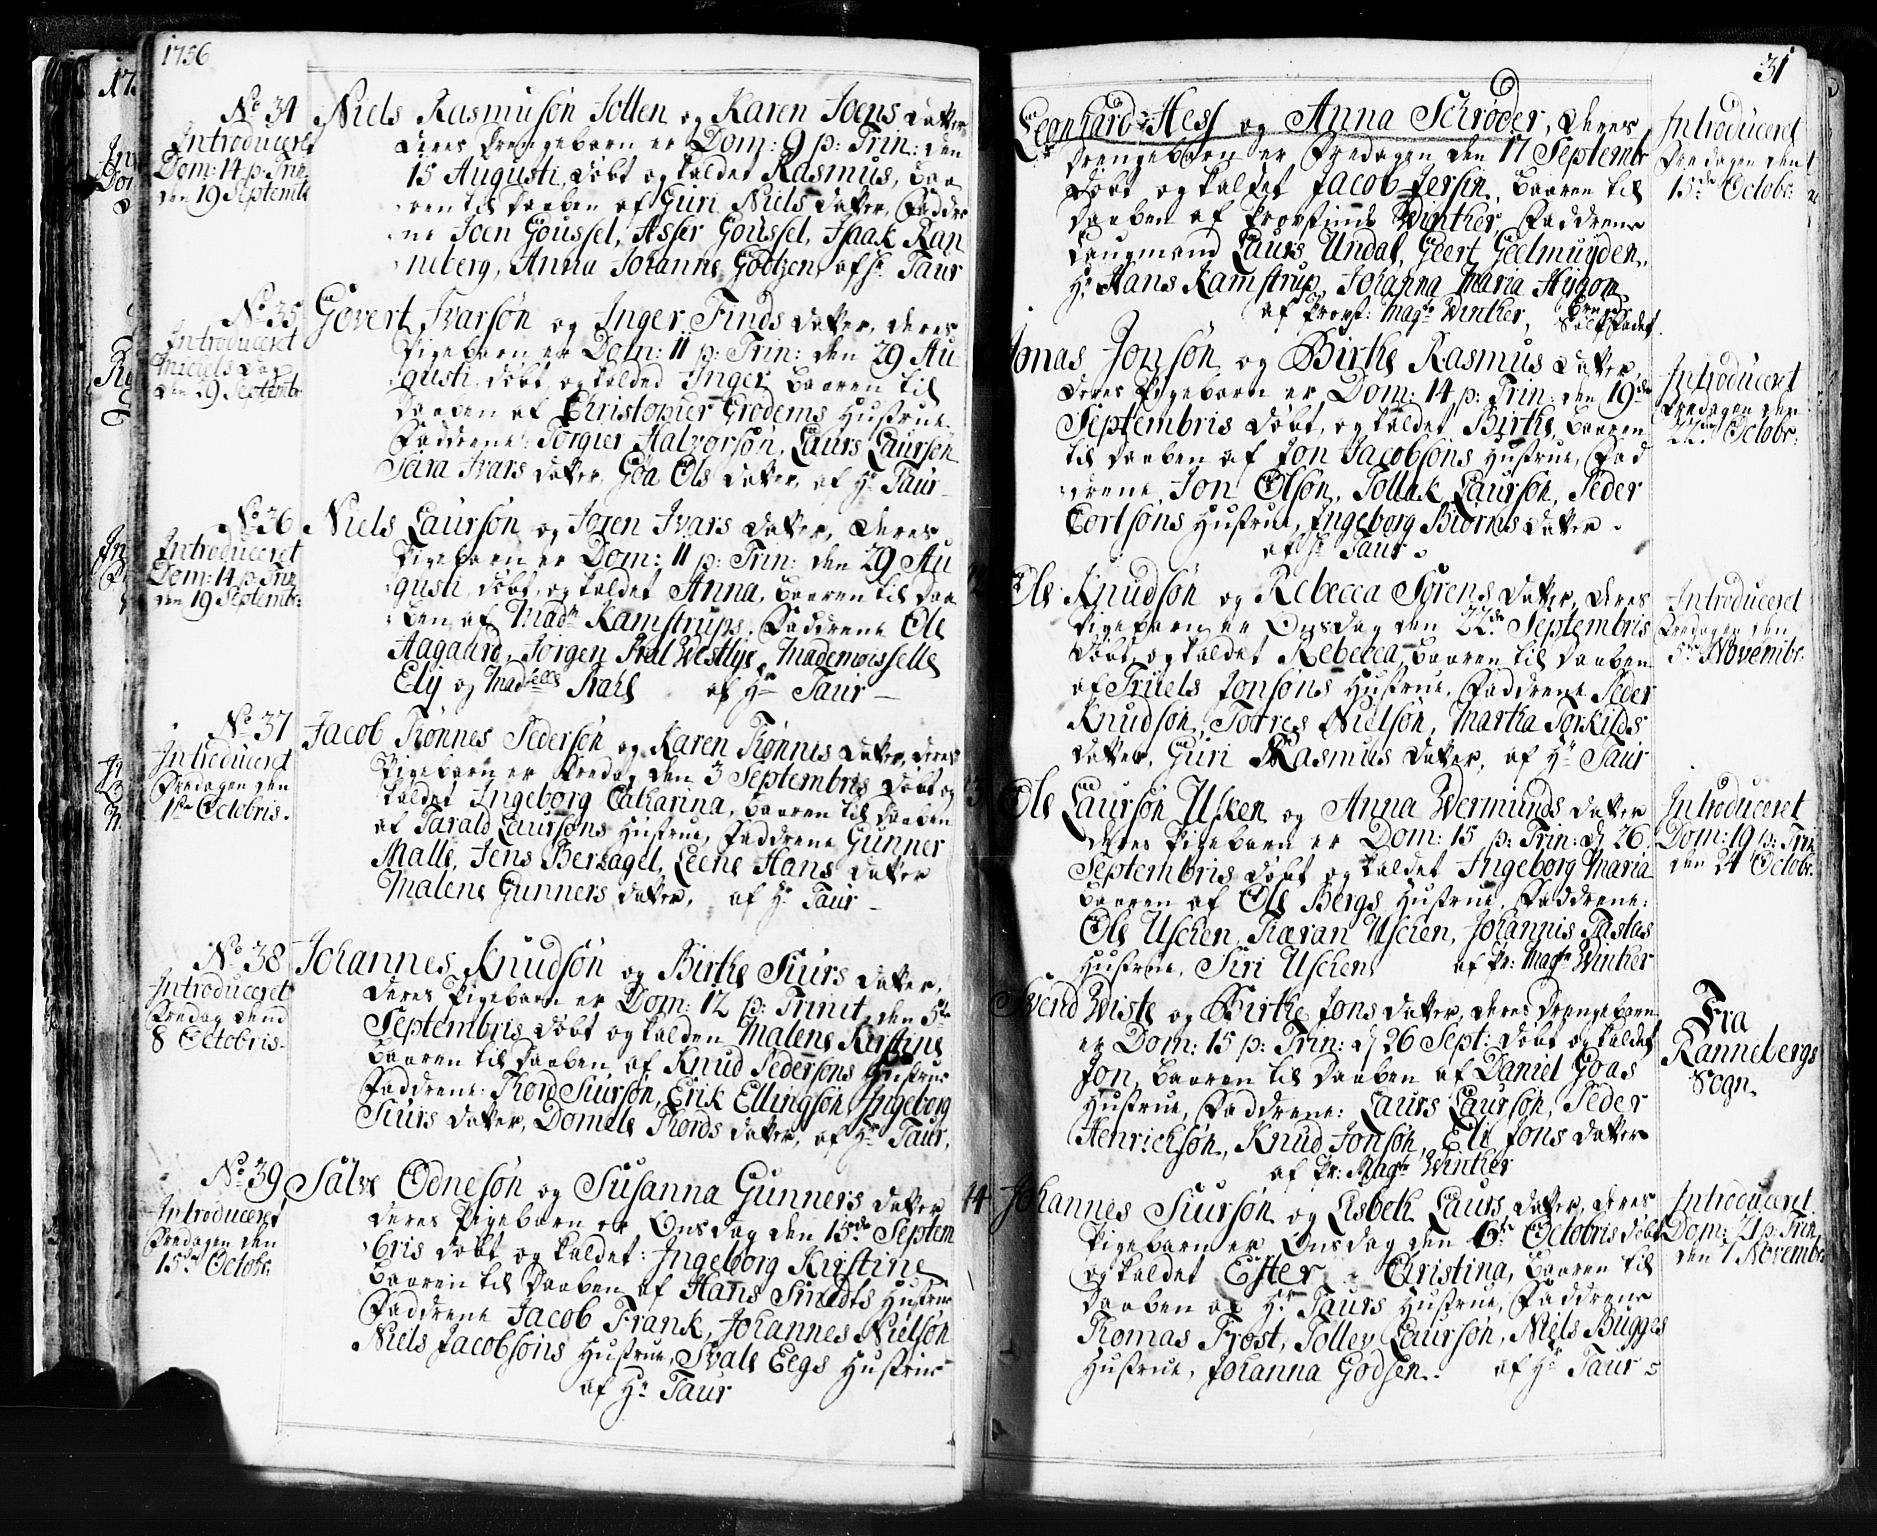 1756
No 34
Introduceret
Dom: 14 p: Trin
den 19 Septembr
Niels Rasmusøn Jolten og Karen Joens datter
deres drengebarn er Dom: 9 p: Trin: den
15 Augusti, døbt og kaldet Rasmus, baa
ren til daaben af Guri Niels datter, Faddre
ne Joen Goussel, Asser Goussel, Isaak Ran
neberg, Anna Johanne Godtzen, af Hr Taur
No 35
Introduceret
Michels Dag
den 29 Septembr
Govert Ivarsøn og Inger Finds datter, deres
Pigebarn er Dom: 11 p: Trin: den 29 Au
gusti, døbt, og kalded Inger, baaren til
daaben af Christopher Grødems Hustrue
Faddrene: Torgier Halvorsøn, Laurs Laursøn
Seira Ivars datter, Goa Ols datter, af Hr Taur
No 36
Introduceret
Dom: 14 p: Trin
den 19 Septembr:
Niels Laursøn og Joren Ivars datter, deres
Pigebarn er Dom: 11 p: Trin: den 29 Au
gusti, døbt, og kaldet Anna, baaren til daa
ben af Madm Kamstrups, Faddrene Ole
Aagaard, Jørgen Pral Westlye, Mademoisselle
Ely og Madselle Prahl af Hr Taur
No 37
Introduceret
Fredagen den
1ste Octobris.
Jacob Tønnes Pedersøn og Karen Tønnis datter, deres
Pigebarn er Fredag den 3 Septembris døbt og
kaldet Ingeborg Catharina, baaren til daaben
af Tarald Laursøns Hustrue, Faddrene Gunner
Malle, Jens Bersagel, Leene Hans datter
Malene Gunners datter, af Hr Taur
No 38
Introduceret
Fredag den
8 Octobris.
Johannes Knudsøn og Birthe Siurs datter,
deres Pigebarn er Dom: 12 p: Trinit, den 5te
Septembris døbt og kalden Malene Kirstine
baaren til daaben af Knud Pedersøns Hustrue
Faddrene: Thord Siursøn, Erik Ellingsøn, Ingeborg
Siurs datter, Domele Thords datter, af Hr Taur,
No 39
Introduceret
Fredagen den
15de Octobr:
Salve Odnesøn og Susanna Gunners datter
deres Pigebarn er Onsdag den 15de Septem
bris døbt og kaldet: Ingeborg Kirstine
baaren til daaben af Hans Smedts Hustrue
Faddrene Jacob Frank, Johannes Nielsøn
Niels Jacobsøns Hustrue, Svale Eegs Hustrue
af Hr Taur
31
Leonhard Hess og Anna Schrøder, deres
drengebarn er Fredagen den 17 Septembr
døbt og kaldet Jacob Jersin, baaren til
daaben af Provstinde Winther, Faddrene
Laugmand Laurs Undal, Geert Geelmuyden,
Hr Hans Kamstrup, Johanna Maria Hygom,
af Provst: Magr Winther,
Introduceret
Fredagen den
15de Octobr:
Jonas Jonsøn og Birthe Rasmus datter,
deres Pigebarn er Dom: 14 p: Trin: den 19de
Septembris døbt, og kaldet Birthe, baaren
til daaben af Jon Jacobsøns Hustrue, Fad
drene, Jon Olsøn, Tollak Laursøn, Peder
Cortsøns Hustrue, Ingeborg Biørns datter
af Hr Taur
Introduceret
Fredagen den
22de Octobr:
Ole Knudsøn og Rebecca Sørens datter, deres
Pigebarn er Onsdag den 22de Septembris
døbt, og kaldet Rebecca, baaren til daaben
af Truels Jonsøns Hustrue, Faddrene Peder
Knudsøn, Torres Nielsøn, Martha Torkilds
datter, Guri Rasmus datter, af Hr Taur
Introduceret
Fredagen den
5te Novembr:
Ole Laursøn Usken og Anna Wermunds datter
deres Pigebarn er Dom: 15 p: Trin: d 26
Septembris døbt og kaldet Ingeborg Maria
baaren af Ole Bergs Hustrue, Faddrene:
Ole Uschen, Tiæran Uschen, Johannis Tastas
Hustrue, Siri Uschens af Pr: Magr Winther
Introduceret
Dom: 19 p: Trin
den 24 Octobr:
Svend Wiste og Birthe Jons datter, deres drengebarn
er Dom: 15 p: Trin: d 26 Sept: døbt og kaldet
Jon, baaren til daaben af Daniel Goas
Hustrue, Faddrene: Laurs Laursøn, Peder
Henrichsøn, Knud Jonsøn, Eli Jons datter
af Pr: Magr Winther
Fra
Rannebergs
Sogn.
Johannes Siursøn og Lisbeth Laurs datter, deres
Pigebarn er Onsdag den 6te Octobris døbt
og kaldet Ester Christina, baaren til
daaben af Hr Taurs Hustrue, Faddrene
Thomas Frost, Tollev Laursøn, Niels Bugges
Hustrue, Johanna Godsen. af Hr Taur
Introduceret
Dom: 21 p: Trin
den 7 Novembr